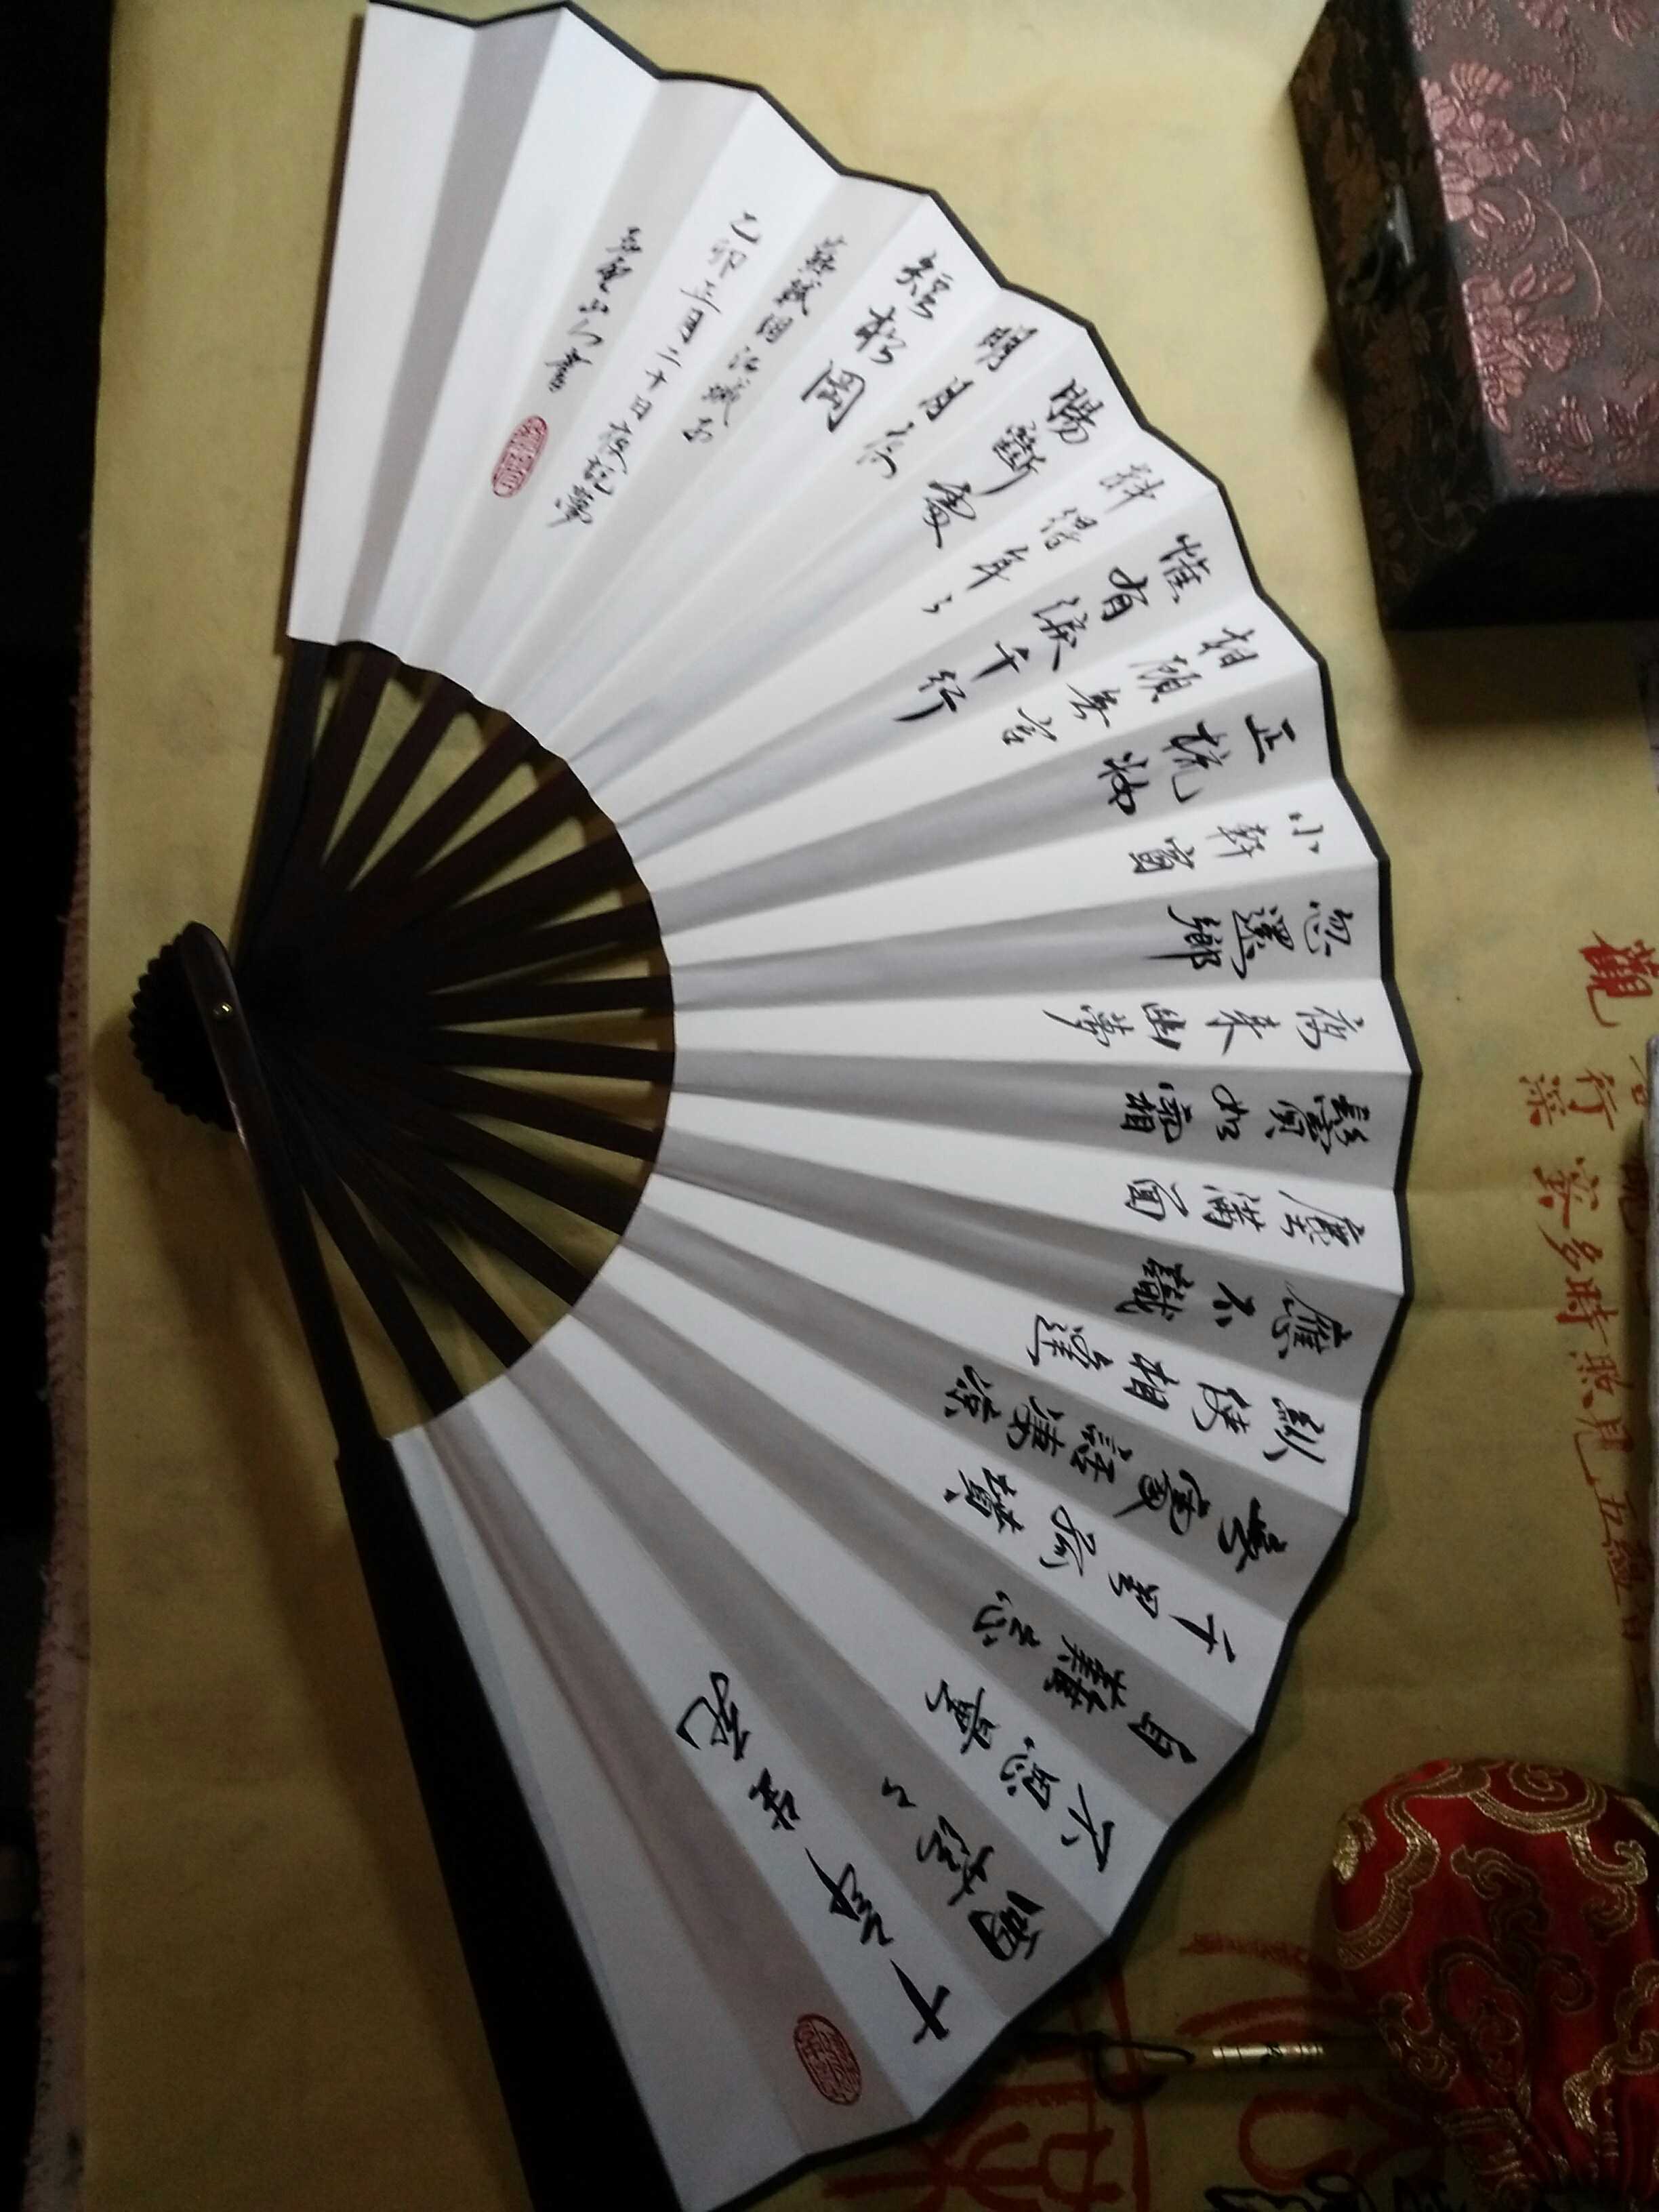 十年生死
兩茫〻
不思量
自難忘
千里孤墳
無處話淒涼
縱使相逢
應不識
塵滿面
鬢如霜
夜来幽夢
忽還鄉
小軒窗
正梳妝
相顧無言
惟有淚千行
料得年〻
腸斷處
明月夜
短松岡
蘇軾詞江城子
乙卯正月二十日夜記夢
山人書
觀
行深
多時照見五蘊皆